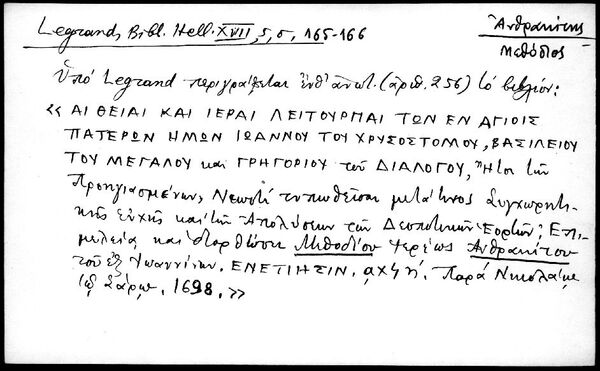 Legrand, Bibl. Hell. XVII, 5, σ, 165-166
Ἀνθρακίτης
Μεθόδιος
Ὑπό Legrand περιγράφεται ἐνθ' ἀνωτ. (ἀριθ. 256) τό βιβλίον:
« ΑΙ ΘΕΙΑΙ ΚΑΙ ΙΕΡΑΙ ΛΕΙΤΟΥΡΓΙΑΙ ΤΩΝ ΕΝ ΑΓΙΟΙΣ
ΠΑΤΕΡΩΝ ΗΜΩΝ ΙΩΑΝΝΟΥ ΤΟΥ ΧΡΥΣΟΣΤΟΜΟΥ, ΒΑΣΙΛΕΙΟΥ
ΤΟΥ ΜΕΓΑΛΟΥ και ΓΡΗΓΟΡΙΟΥ τοῦ ΔΙΑΛΟΓΟΥ, Ἤτοι τῶν
Προηγιασμένων, Νεωστί τυπωθεῖσαι μετά τινος Συγχωρητι-
κῆς εὐχῆς και τῶν Ἀπολύσεων τῶν Δεσποτικῶν Ἑορτῶν; Ἐπι-
μελείᾳ και διορθώσει Μεθοδίου ἱερέως Ἀνθρακίτου
τοῦ ἐξ Ἰωαννίνων. ΕΝΕΤΙΗΣΙΝ. ᾳχϟή. Παρά Νικολάῳ
τῷ Σάρῳ. 1698. »